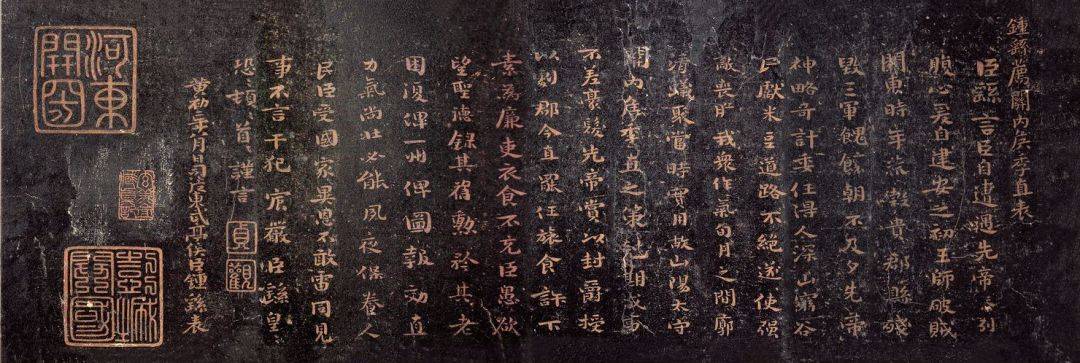 鍾繇薦關內侯季直表
臣繇言臣自遭遇先帝忝列
腹心爰自建安之初王師破賊
關東時年荒穀貴郡縣殘
毀三軍餽饟朝不及夕先帝
神略奇計委任得人深山窮谷
民獻米豆道路不絕遂使強
敵喪膽我衆作氣旬月之間廓
清蟻聚當時實用故山陽太守
關內侯季直之策剋期成事
不差豪髮先帝賞以封爵授
以劇郡今直罷任旅食許下
素為廉吏衣食不充臣愚欲
望聖德錄其舊勳矜其老
困復俾一州俾圖報効直
力氣尚壯必能夙夜保養人
民臣受國家異恩不敢雷同見
事不言干犯宸嚴臣繇皇
恐頓首謹言
貞觀
黃初二年八月日司徒東武亭侯臣鍾繇表
河東